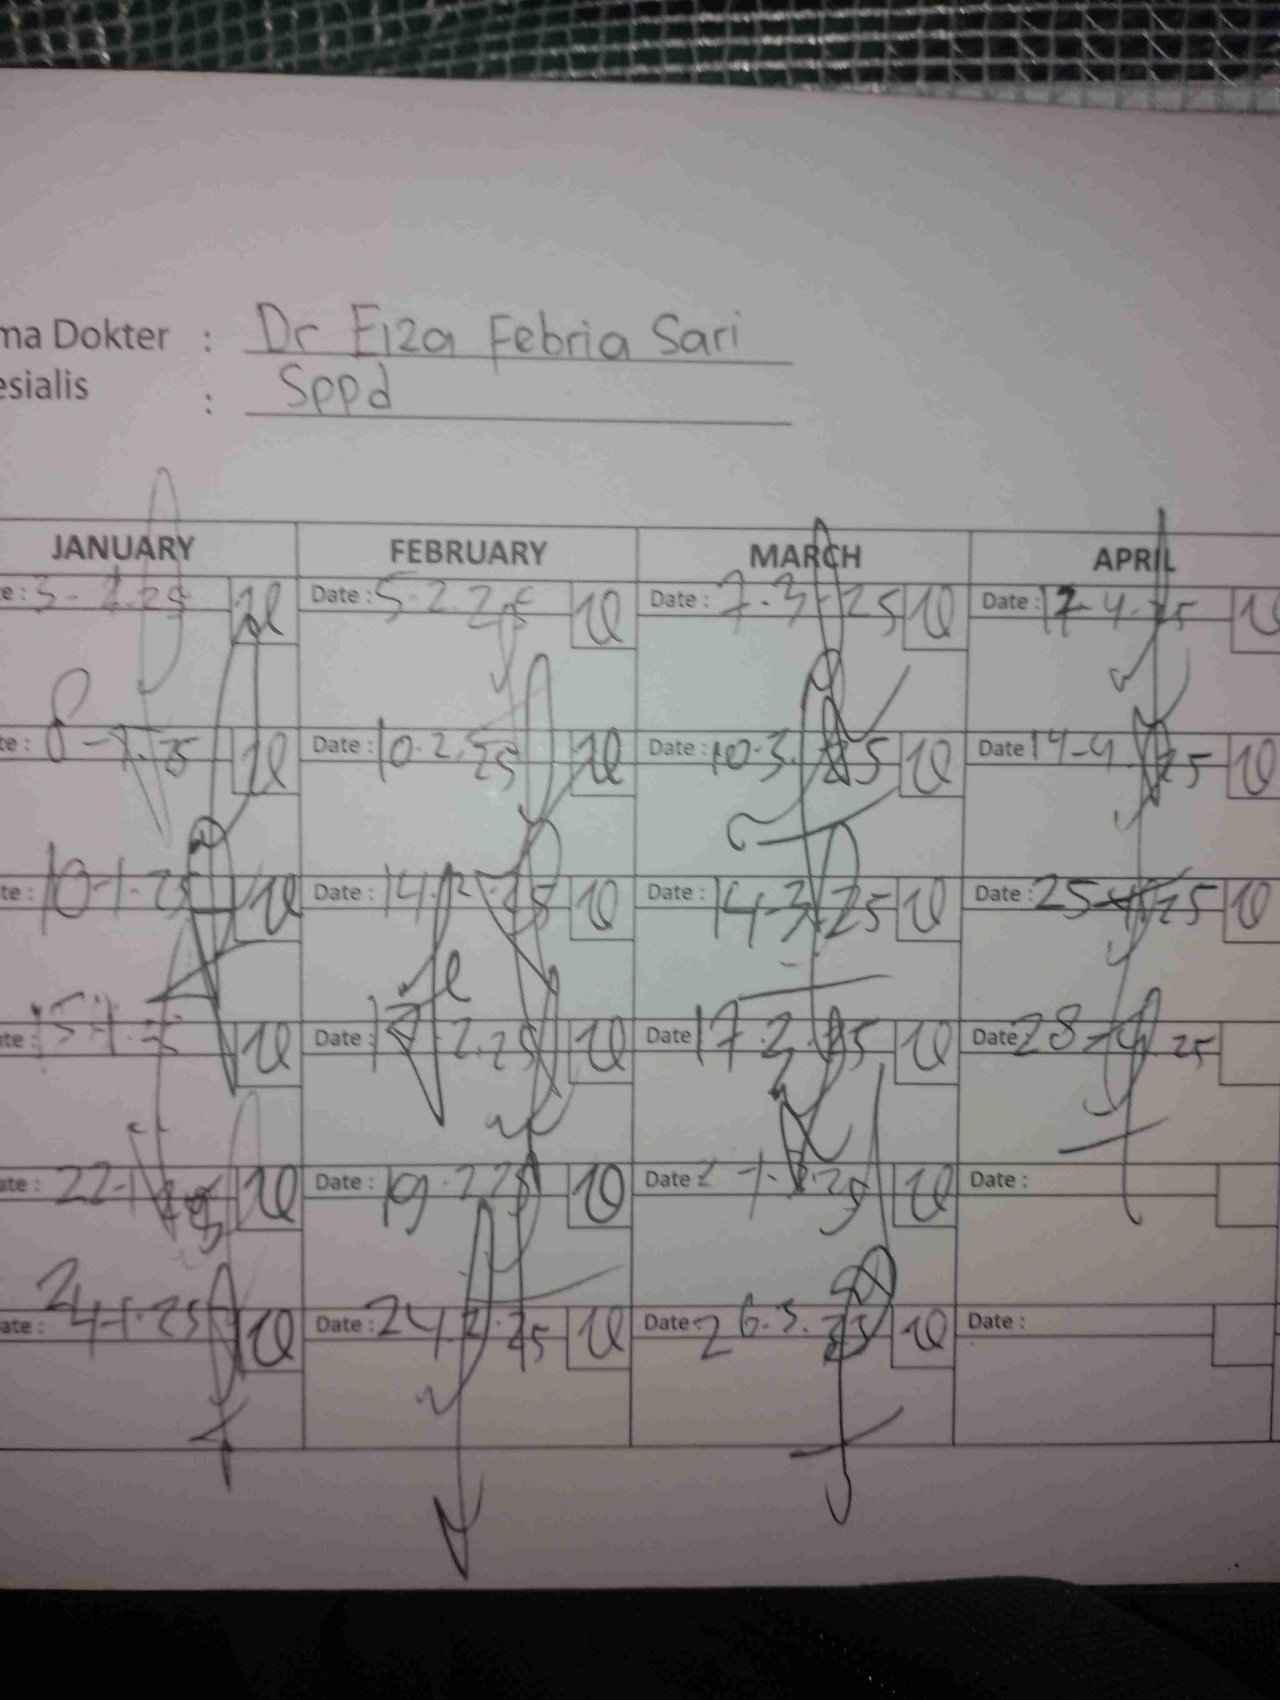 ma Dokter : Dr Eiza Febria Sari
esialis : Sppd
JANUARY FEBRUARY MARCH APRIL
e : 3- 1.25 Date : 5.2.25 Date : 7.3.25 Date : 12.4.25
te : 8-1.25 Date : 10.2.25 Date : 10.3.25 Date 14-4.25
te : 10-1.25 Date : 14.2.25 Date : 14-3.25 Date : 25-4.25
ate : 15-1.25 Date : 17.2.25 Date 17.3.25 Date 28-4.25
ate : 22-1.25 Date : 19.2.25 Date : Date :
ate : 24-1.25 Date : 24.2.25 Date : 26.3.25 Date :